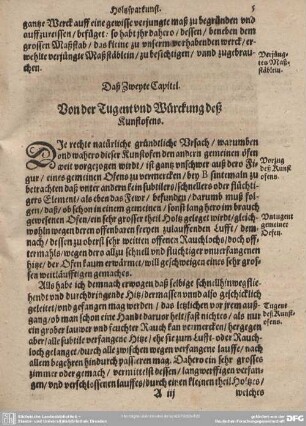 Holtzsparkunst. 5
gantze Werck auff eine gewisse verjungte maß zu begründen vnd
auffzureissen / befüget: so habt jhr dahero / dessen / beneben dem
grossen Maßstab / das kleine zu vnserm vorhabenden werck / er-
wehlte verjüngte Maßstäblein / zu besichtigen / vnnd zugebrau-
chen.
Verjüng-
tes Maß-
stäblein.
Daß Zweyte Capitel.
Von der Tugent vnd Würckung deß
Kunstofens.
Die rechte natürliche gründtliche Vrsach / warumben
vnd wahero dieser Kunstofen den andern gemeinen öfen
weit vorgezogen wirdt / ist gantz vnschwer auß dero Fi-
gur / eines gemeinen Ofens zu vermercken / bey B sintemaln zu
betrachten daß vnter andern kein subtilers / schnellers oder flüchti-
gers Element / als eben das Fewr / befunden / darumb muß fol-
gen / daß / ob schon in einem gemeinen / sonst lang hero im brauch
gewesenen Ofen / ein sehr grosser theil Holtz geleget wirdt / gleich-
wohln wegen deren offenbaren freyen zulauffenden Lufft / dem-
nach / dessen zu oberst sehr weitten offenen Rauchlochs / doch off-
termahls / wegen dero allzu schnell flüchtiger vnuerfangener
hitze / der Ofen kaum erwärmt / will geschweigen eines sehr gros-
sen weitläuffigen gemachs.
Vorzug
des Kunst
ofens.
Vntugent
gemeiner
Oefen.
Als habe ich demnach erwogen daß selbige schnell hinwegflie-
hendt vnd durchdringende Hitz / dermassen vnd also geschicklich
geleitet / vnd gefangen mag werden / daß letzlichen vor jrem auß-
gang / ob man schon eine Handt daruor helt / fast nichts / als nur
ein grober lauwer vnd feuchter Rauch kan vermercken / hergegen
aber / alle subtile verfangene Hitz / ehe sie zum Lufft- oder Rauch-
loch gelanget / durch alle zwischen wegen verfangene lauffe / nach
allem begehren hindurch passieren mag. Dahero ein sehr grosses
zimmer oder gemach / vermittelst dessen / langwerffigen verfan-
gen / vnd verschlossenen lauffes / durch ein en kleinen theil Holtzes /
Tugent
deß Kunst-
ofens.
A iij welches